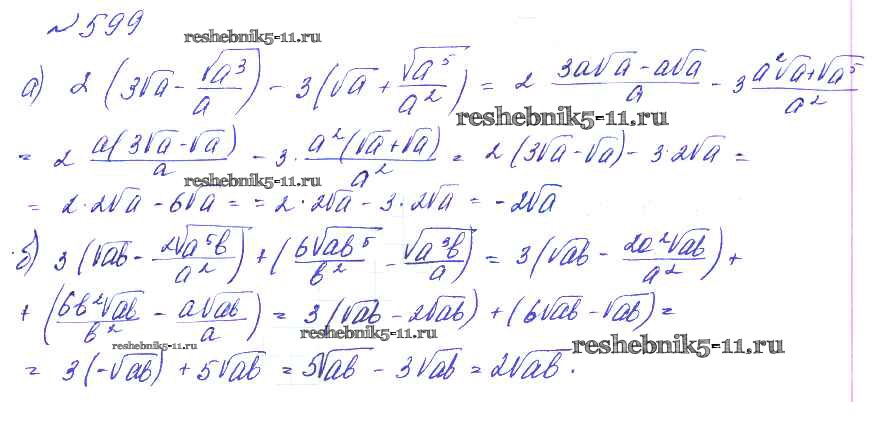 №599
reshebnik5-11.ru
а) 2 (3√a - √a³/a) - 3(√a + √a⁵/a²) = 2 (3a√a - a√a)/a - 3 (a²√a + √a⁵)/a²
reshebnik5-11.ru
= 2 a(3√a - √a)/a - 3 · a²(√a + √a)/a² = 2 (3√a - √a) - 3 · 2√a =
reshebnik5-11.ru
= 2 · 2√a - 6√a = = 2 · 2√a - 3 · 2√a = -2√a
б) 3 (√ab - 2√a⁵b/a²) + (6√ab⁵/b² - √a³b/a) = 3 (√ab - 2a²√ab/a²) +
+ (6b²√ab/b² - a√ab/a) = 3 (√ab - 2√ab) + (6√ab - √ab) =
reshebnik5-11.ru
reshebnik5-11.ru
reshebnik5-11.ru
= 3 (-√ab) + 5√ab = 5√ab - 3√ab = 2√ab.